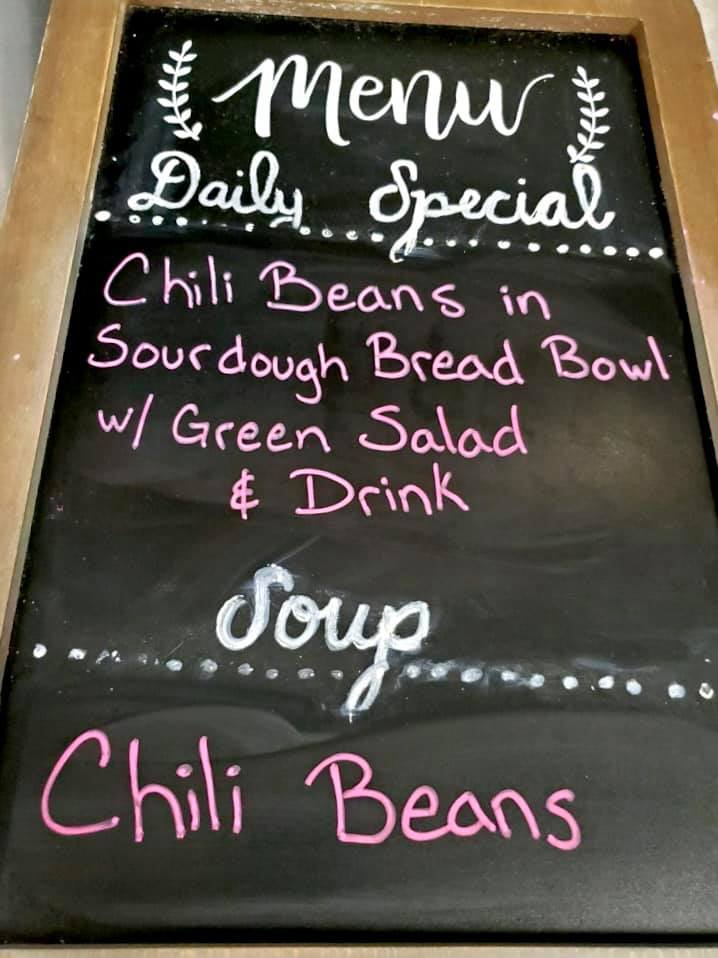 Menu
Daily Special
Chili Beans in
Sourdough Bread Bowl
w/ Green Salad
& Drink
Soup
Chili Beans